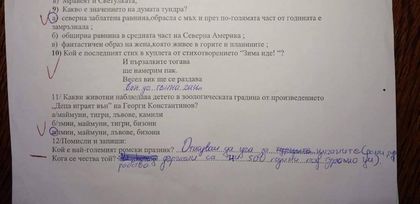 в) Мравсит и Светулката,
9) Какво е значението на думата тундра?
а) северна заблатена равнина, обрасла с мъх и през по-голямата част от годината е
замръзнала ;
б) обширна равнина в средната част на Северна Америка ;
в) фантастичен образ на жена, която живее в горите и планините ;
10) Кой е последният стих в куплета от стихотворението "Зима иде! "?
И пързалки тогава
ще намерим пак.
Весел вик ще се раздава
11/ Какви животни наблюдава детето в зоологическата градина от произведението
„Деца играят вън” на Георги Константинов?
а/маймуни, тигри, лъвове, камили
б/змии, маймуни, тигри, бизони
в/змии, маймуни, лъвове, бизони
12/Помисли и запиши:
Кой е най-големият ромски празник? Отказват да ура за циганите (роми,
Кога се чества той? държали са ни 500 години под